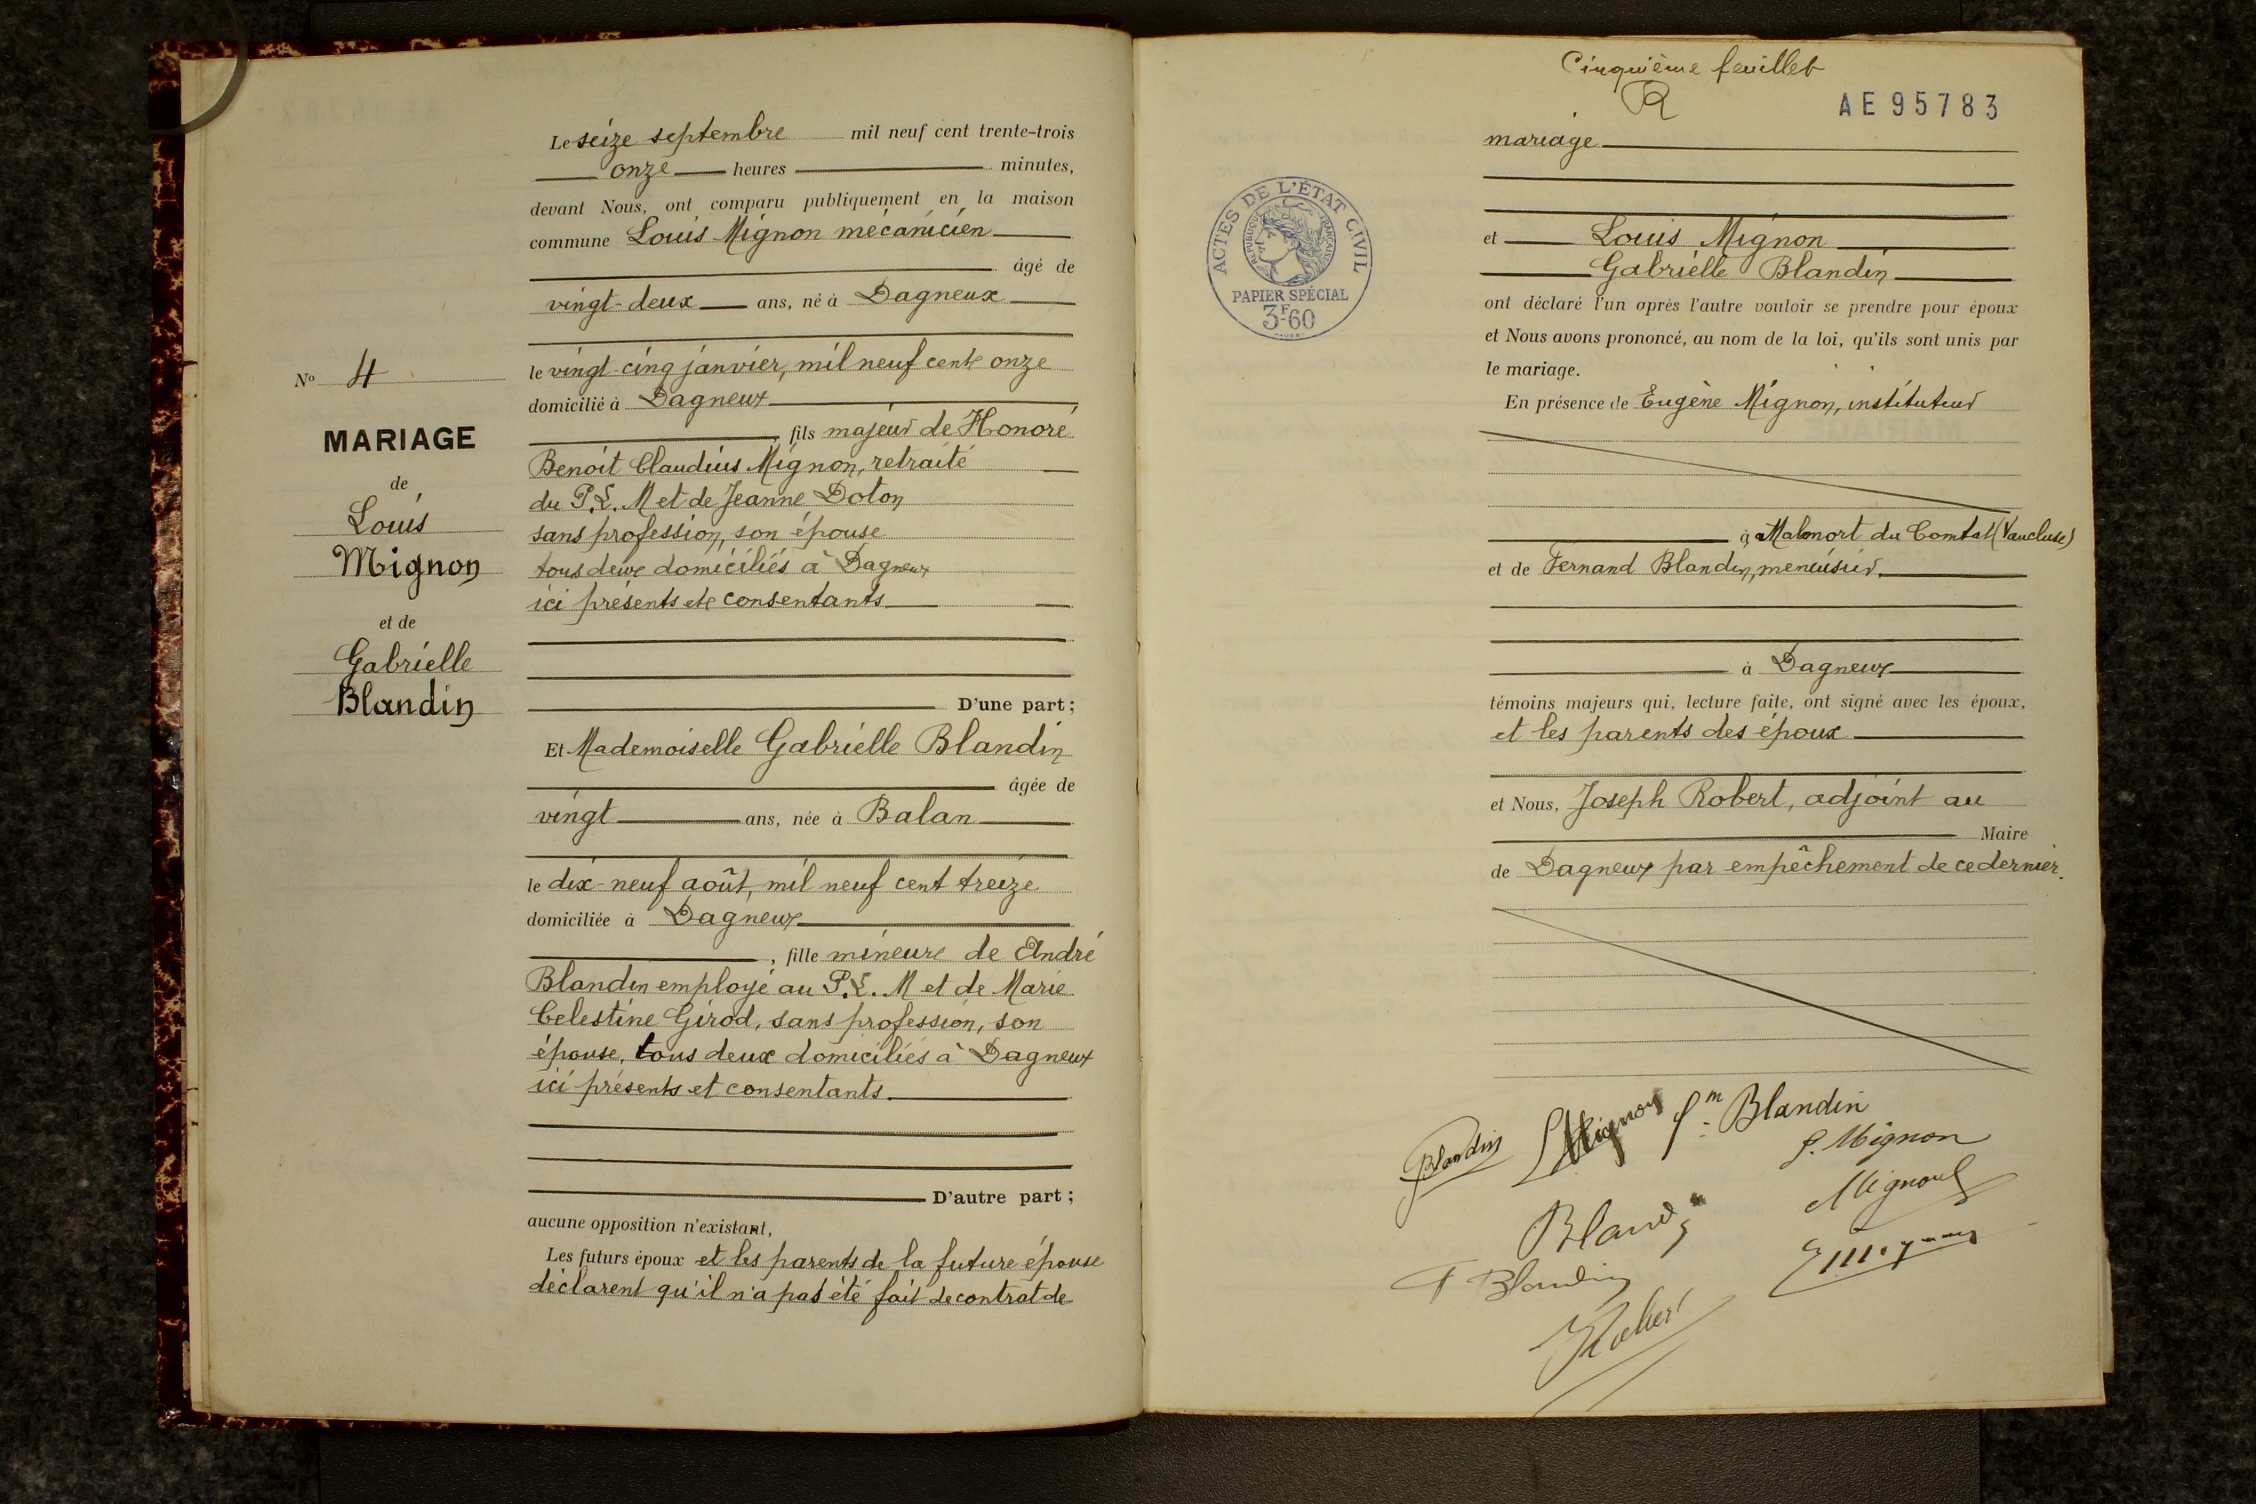 Le seize septembre mil neuf cent trente-trois
onze heures minutes,
devant Nous, ont comparu publiquement en la maison
commune Louis Mignon mécanicien
âgé de
vingt-deux ans, né à Dagneux
le vingt-cinq janvier, mil neuf cent onze
domicilié à Dagneux
, fils majeur de Honoré
Benoit Claudius Mignon, retraité
du P.L.M et de Jeanne Doton
sans profession, son épouse
tous deux domiciliés à Dagneux
ici présents et consentants
D'une part ;
Et Mademoiselle Gabrielle Blandin
âgée de
vingt ans, née à Balan
le dix-neuf août, mil neuf cent treize
domiciliée à Dagneux
, fille mineure de André
Blandin employé au P.L.M et de Marie
Celestine Girod, sans profession, son
épouse, tous deux domiciliés à Dagneux
ici présents et consentants.
D'autre part ;
aucune opposition n'existant,
Les futurs époux et les parents de la future épouse
déclarent qu'il n'a pas été fait de contrat de
No 4
MARIAGE
de
Louis
Mignon
et de
Gabrielle
Blandin
Cinquième feuillet
AE95783
ACTES DE L'ÉTAT CIVIL
RÉPUBLIQUE FRANÇAISE
PAPIER SPÉCIAL
3F60
mariage
et Louis Mignon
Gabrielle Blandin
ont déclaré l'un après l'autre vouloir se prendre pour époux
et Nous avons prononcé, au nom de la loi, qu'ils sont unis par
le mariage.
En présence de Eugène Mignon, instituteur
à Malmort du Comtat (Vaucluse)
et de Fernand Blandin, menuisier.
à Dagneux
témoins majeurs qui, lecture faite, ont signé avec les époux,
et les parents des époux
et Nous, Joseph Robert, adjoint au
Maire
de Dagneux par empêchement de ce dernier.
Blandin LMignon fm Blandin
Mignon
Blandin Mignon
F Blandin EMignon
JRobert